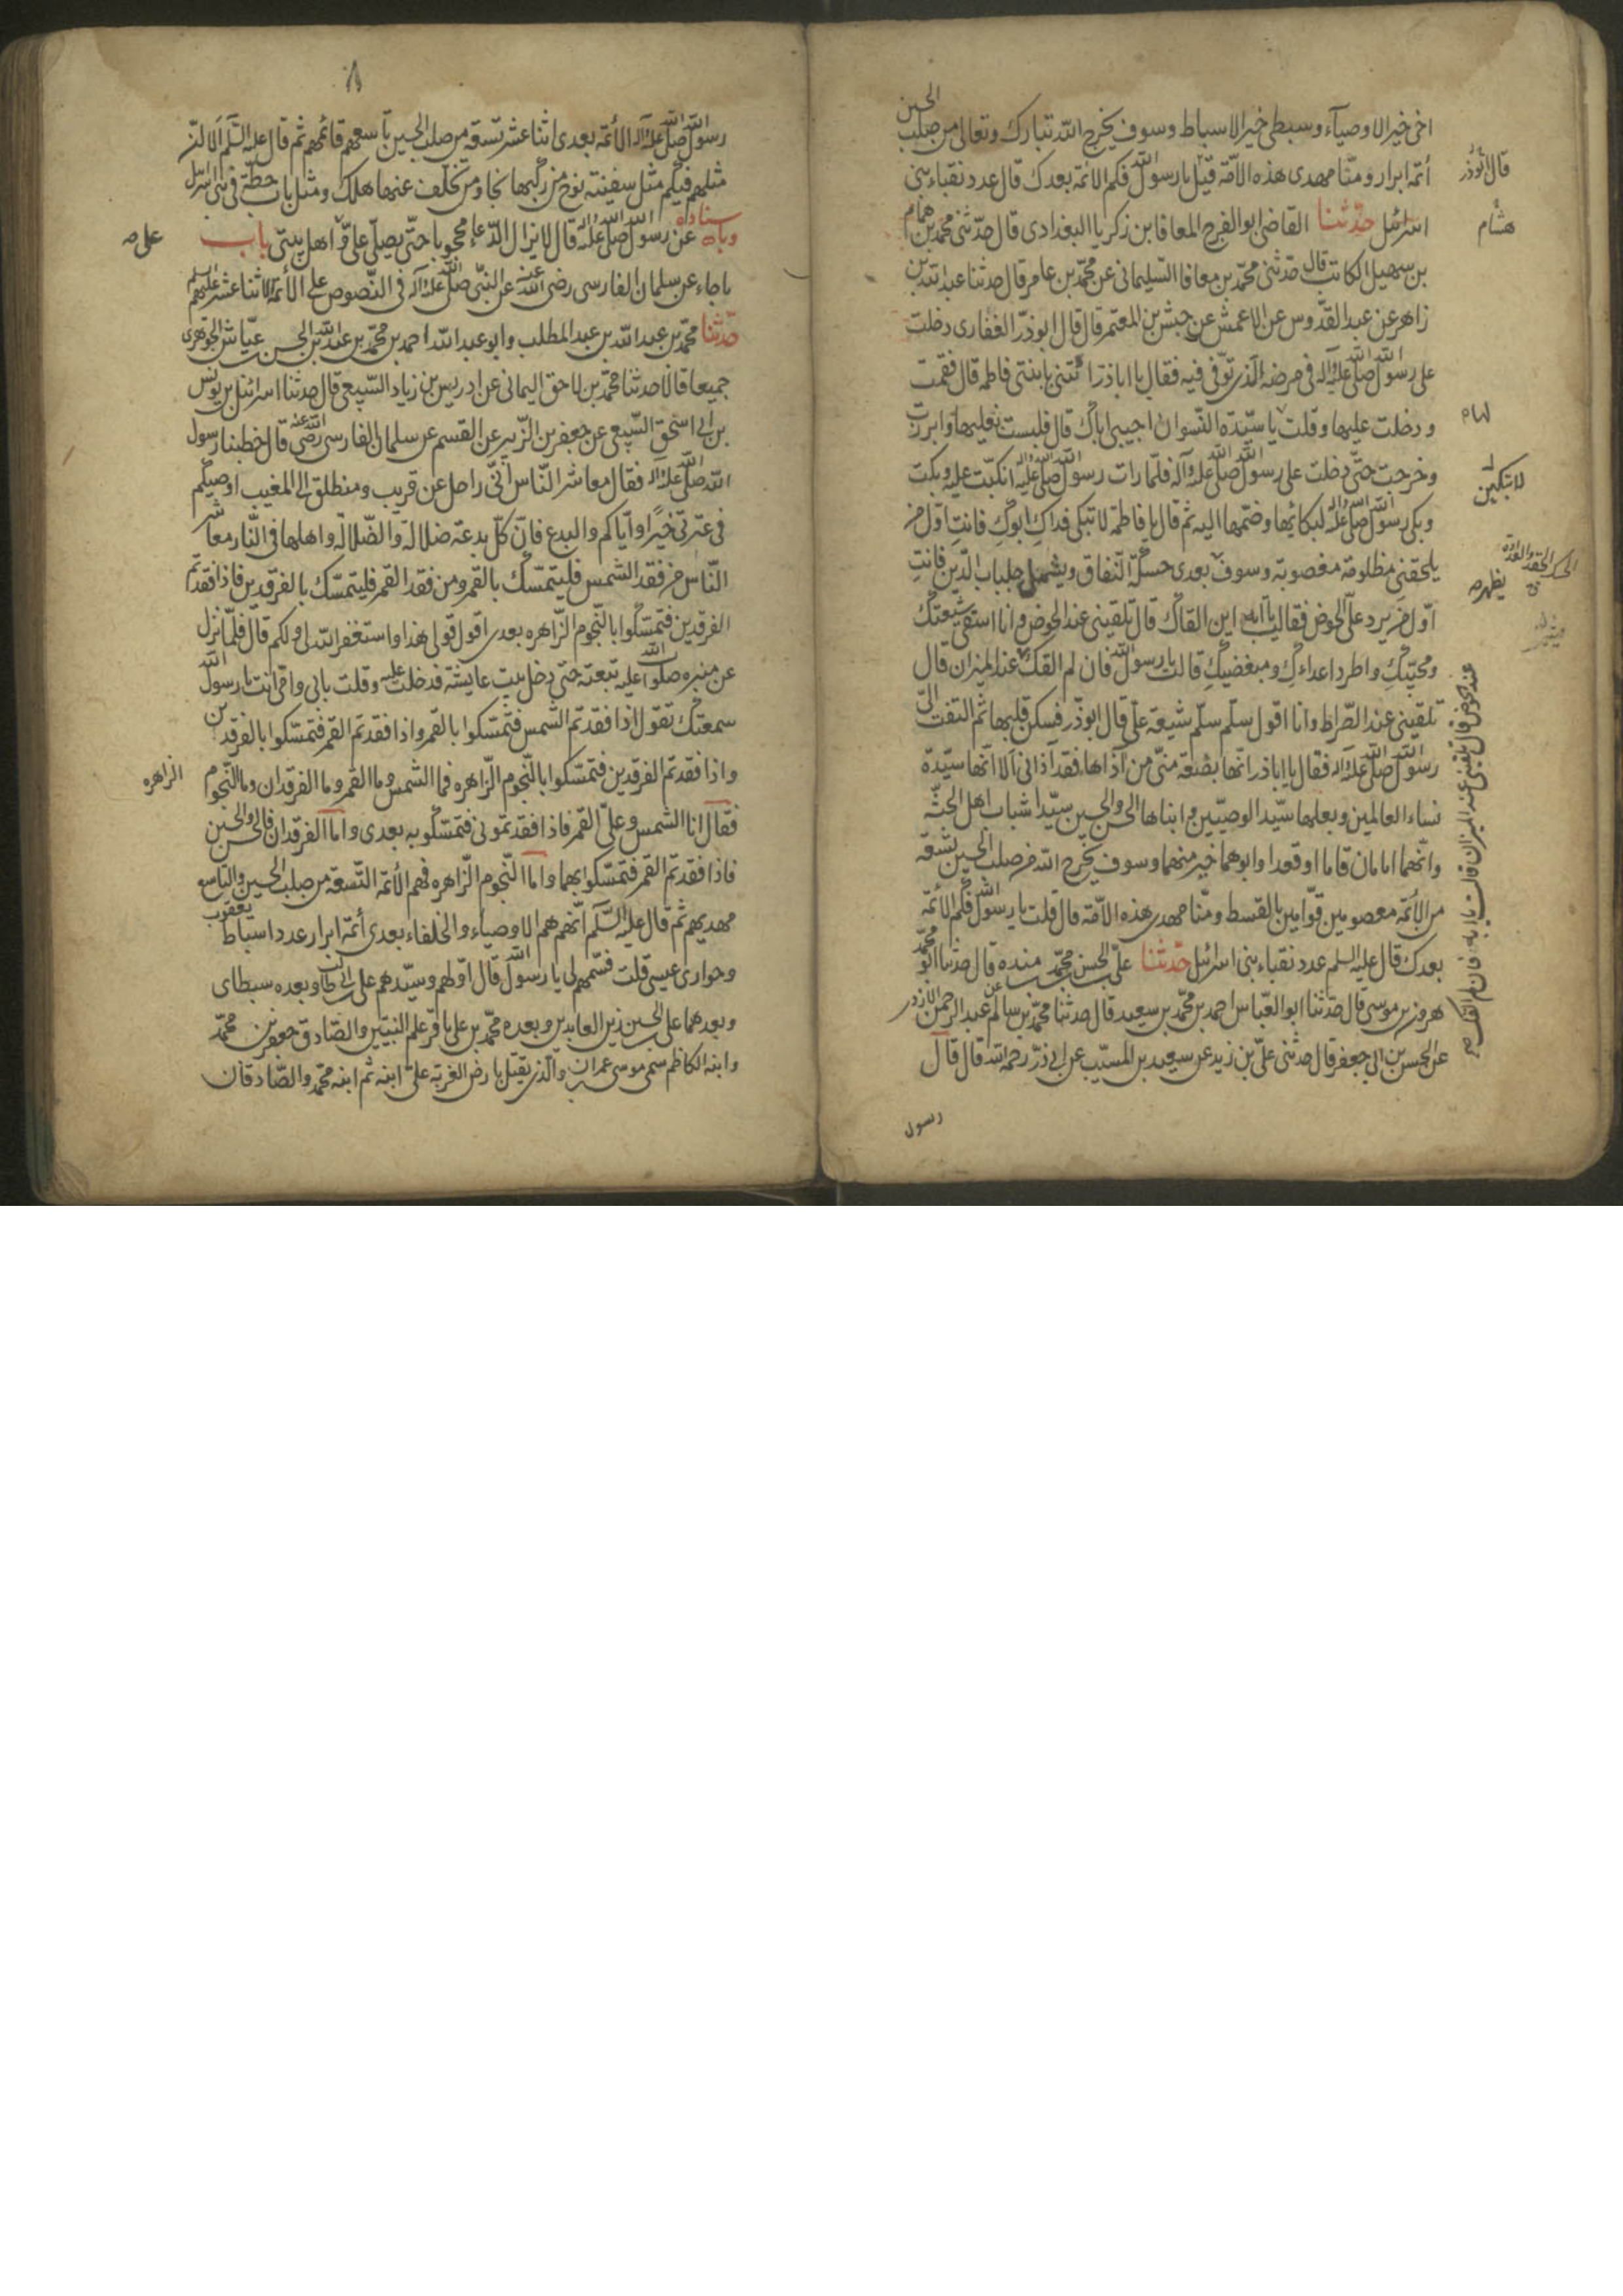 اخى خير الاوصيآء وسبطى خير الاسباط وسوف يخرج الله تبارك وتعالى من صلب الحسين
ائمة ابرار ومنّا مهدى هذه الامّة قيل يا رسول الله فكم الائمة بعدك قال عدد نقباء بنى
قال ابوذر
اسرائيل حدّثنا القاضى ابو الفرج المعافا بن زكريا البغدادى قال حدّثنى محمد بن همام
هشام
بن سهيل الكاتب قال حدثنى محمّد بن معافا السليمانى عن محمّد بن عامر قال حدثنا عبد الله بن
زاهر عن عبد القدّوس عن الاعمش عن حبش بن المعتمر قال قال ابوذرّ الغفارى دخلت
على رسول الله صلى الله عليه وآله فى مرضه الّذى توّفى فيه فقال يا اباذر ائتنى بابنتى فاطمه قال فقمت
ودخلت عليها وقلت يا سيّدة النّسوان اجيبى اباك قال فلبست وابرزت
وخرجت حتّى دخلت على رسول الله صلى الله عليه وآله فلمّا رات رسول الله صلى الله عليه وآله انكبّت عليه وبكت
لا تبكين
وبكى رسول الله صلى الله عليه وآله لبكائها وضمّها اليه ثم قال يا فاطمة لا تبكى فداكِ ابوكِ فانتِ اوّل من
يلحقنى مظلومة مغصوبة وسوف بعدى حسكة النّفاق ويشمل جلباب الدّين فانتِ
يظهر
اوّل من يرد علىّ الحوض فقالت يا ابه اين القاك قال تلقينى عند الحوض وانا اسقى شيعتك
ومحبّيكِ واطرد اعداءكِ ومبغضيكِ قالت يا رسول الله فان لم القك عند الميزان قال
تلقينى عند الصّراط وانا اقول سلّم سلّم شيعة علىّ قال ابوذّر فسكن قلبها ثم التفت الىّ
عند الحوض قال تلقينى عند الميزان قالت يا ابه فان لم القك
رسول الله صلى الله عليه وآله فقال يا اباذر انّها بضعة منّى من آذاها فقد آذانى الا انّها سيّدة
نساء العالمين وبعلها سيّد الوصيّين وابناها الحسن والحسين سيّدا شباب اهل الجنّة
وانّهما امامان قاما او قعدا وابوهما خير منهما وسوف يخرج الله من صلب الحسين تسعة
من الائمّة معصومين قوّامين بالقسط ومنّا مهدى هذه الامّة قال قلت يا رسول الله فكم الائمّة
بعدك قال عليه السلم عدد نقباء بنى اسرائيل حدّثنا علىّ بن الحسن بن محمّد بن منده قال حدّثنا ابو محمّد
هرون بن موسى قال حدّثنا ابو العبّاس احمد بن محمّد بن سعيد قال حدثنا محمّد بن سالم عن عبد الرحمن الازدى
عن الحسن بن ابى جعفر قال حدثنى علىّ بن زيد عن سعيد بن المسيّب عن ابى ذرّ رحمه الله قال قال
رسول
رسول الله صلى الله عليه وآله الائمّة بعدى اثنا عشر تسعة من صلب الحسين تاسعهم قائمهم ثم قال عليه السّلم الا انّ
مثلهم فيكم مثل سفينة نوح من ركبها نجا ومن تخلّف عنها هلك ومثل باب حطّة فى بنى اسرائيل
وباسناده عن رسول الله صلى الله عليه وآله قال لا يزال الدّعاء محجوبا حتّى يصلّى علىّ واهل بيتى باب
على
ما جاء عن سلمان الفارسى رضى الله عنه عن النبّى صلى الله عليه وآله فى النّصوص على الأئمّة الاثنا عشر عليهم السلم
حدّثنا محمّد بن عبد الله بن عبد المطلب وابو عبد الله احمد بن محمّد بن عبد الله بن الحسن بن عيّاش الجوهرى
جميعا قالا حدثنا محمّد بن لاحق اليمانى عن ادريس بن زياد السّبيعى قال حدثنا اسرائيل بن يونس
بن ابى اسحق السّبيعى عن جعفر بن الزّبير عن القسم عن سلمان الفارسى رضى الله عنه قال خطبنا رسول
الله صلى الله عليه وآله فقال معاشر النّاس انّى راحل عن قريب ومنطلق الى المغيب اوصيكم
فى عترتى خيرًا وايّاكم والبدع فانّ كلّ بدعة ضلالة والضّلالة واهلها فى النّار معاشر
النّاس من فقد الشمس فليتمسّك بالقمر ومن فقد القمر فليتمسّك بالفرقدين فاذا فقدتم
الفرقدين فتمسّكوا بالنّجوم الزّاهره بعدى اقول قولى هذا واستغفر الله لى ولكم قال فلمّا نزل
عن منبره صلوات الله عليه تبعته حتى دخل بيت عايشة فدخلت عليه وقلت بابى وامى انت يا رسول الله
سمعتك تقول اذا فقدتم الشّمس فتمسّكوا بالقمر واذا فقدتم القمر فتمسّكوا بالفرقدين
واذا فقدتم الفرقدين فتمسّكوا بالنّجوم الزّاهره فما الشمس وما القمر وما الفرقدان وما النّجوم
الزاهره
فقال انا الشمس وعلىّ القمر فاذا فقدتمونى فتمسّكوا به بعدى وامّا الفرقدان فالحسن والحسين
فاذا فقدتم القمر فتمسّكوا بهما وامّا النّجوم الزّاهره فهم الأئمّة التّسعة من صلب الحسين والتاسع
مهديهم ثم قال عليه السّلم انّهم هم الاوصياء والخلفاء بعدى أئمّة ابرار عدد اسباط يعقوب
وحوارى عيسى قلت فسّمهم لى يا رسول الله قال اوّلهم وسيّدهم على بن ابى طالب وبعده سبطاى
وبعدهما على بن الحسين زين العابدين وبعده محمّد بن على باقر علم النبيّين والصّادق جعفر بن محمّد
وابنه الكاظم سمى موسى بن عمران والّذى يقتل بارض الغربة علىّ ابنه ثم ابنه محمّد والصّادقان